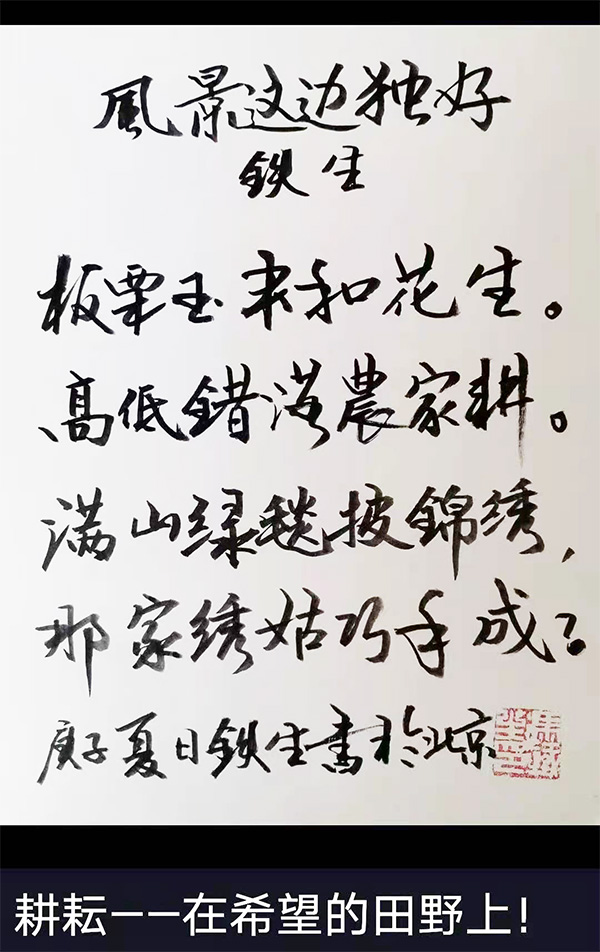 風景这边独好
铁生
板栗玉米和花生。
高低錯落農家耕。
满山绿毯披錦绣,
那家绣姑巧手成?
庚子夏日铁生書於北京
耕耘——在希望的田野上!